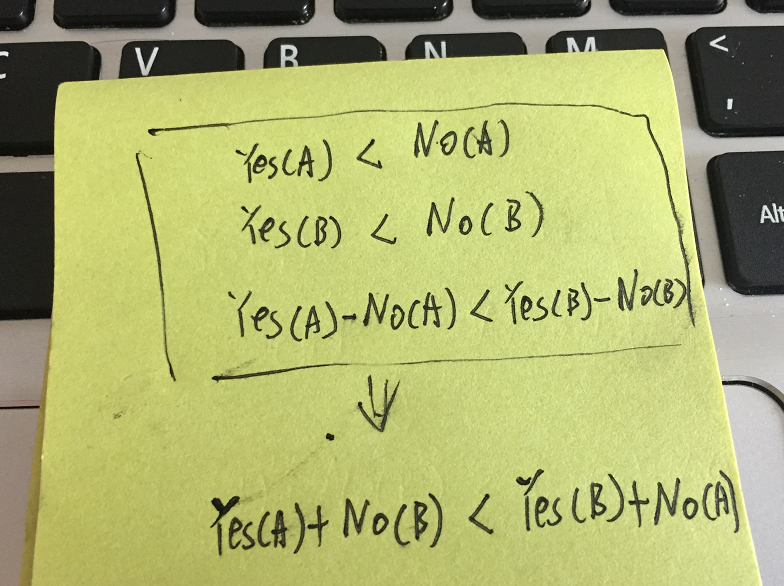 C V B N M <
,
Alt
Yes(A) < No(A)
Yes(B) < No(B)
Yes(A)-No(A) < Yes(B)-No(B)
⇓
Yes(A)+No(B) < Yes(B)+No(A)